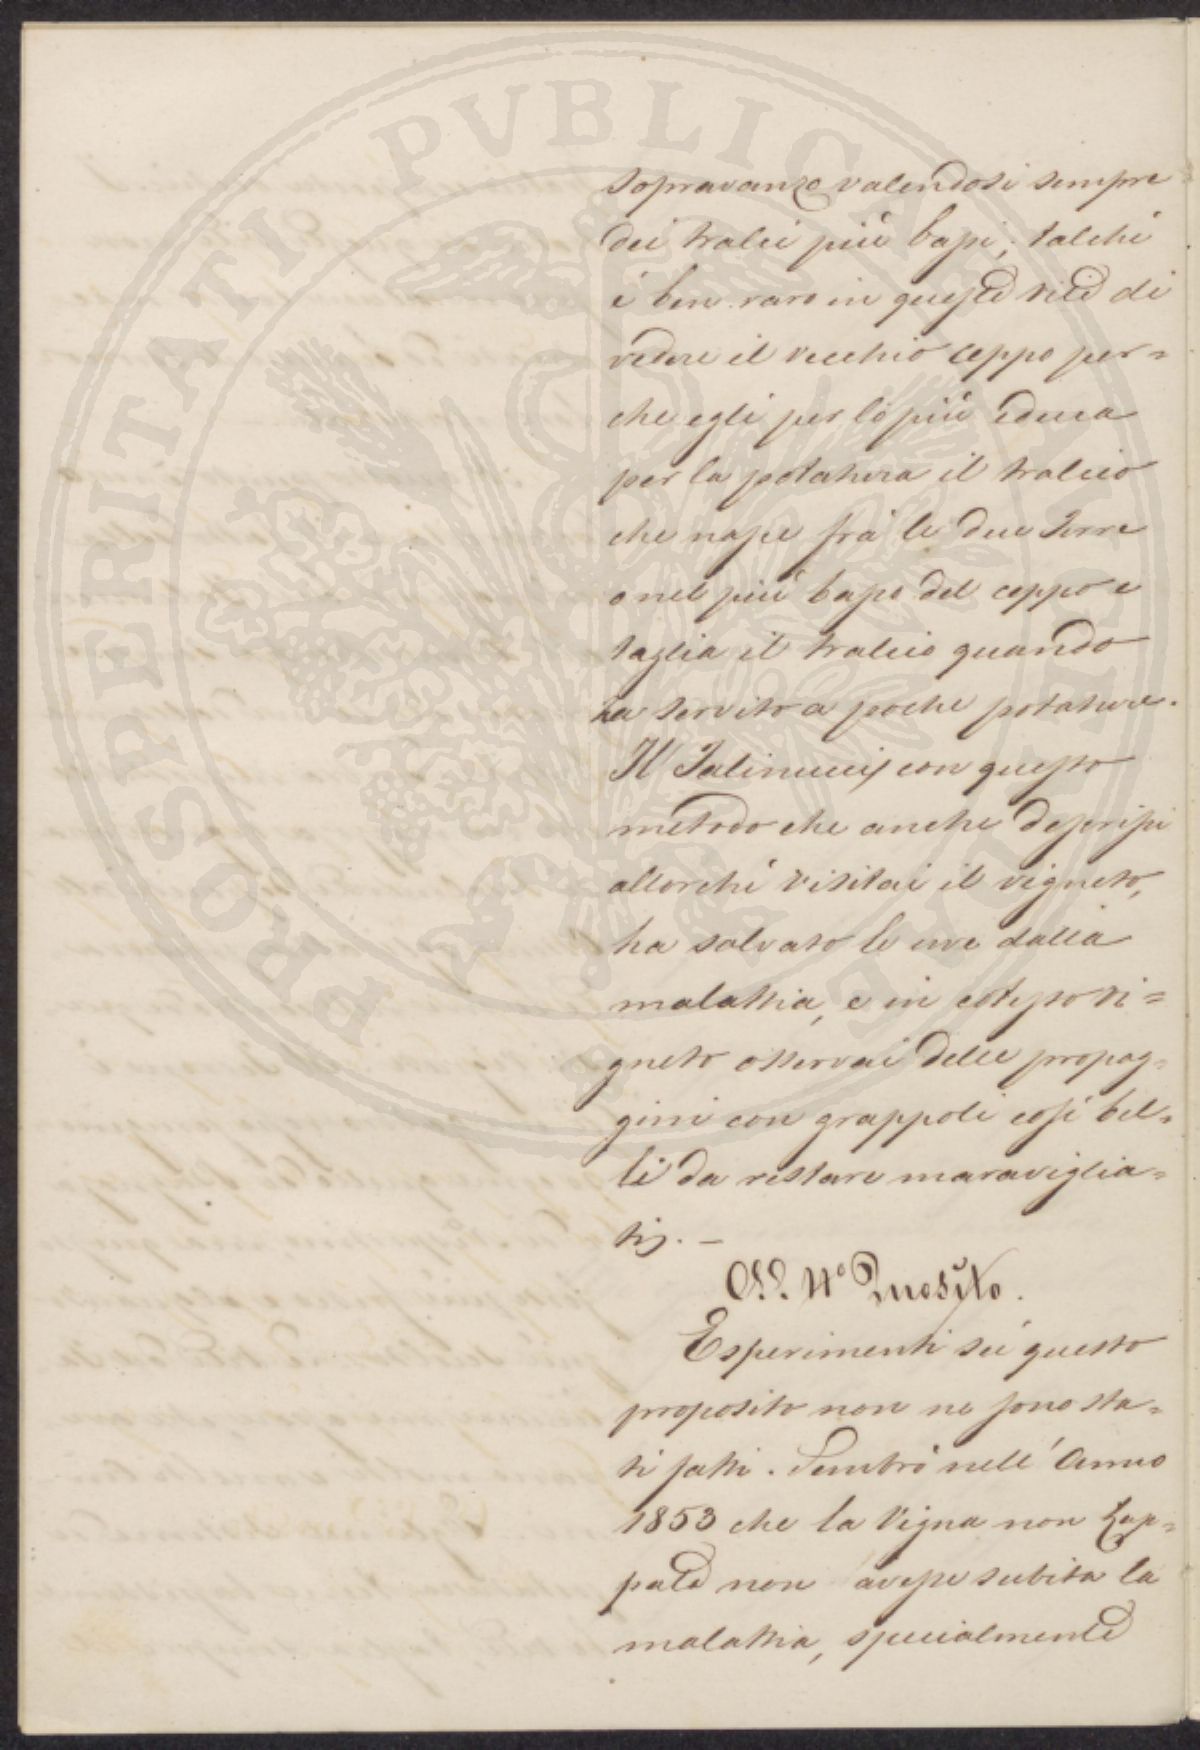 PROSPERITATI PVBLICAE AVGENDAE
sopravanze valendosi sempre
dei tralci più bassi, talchè
è ben raro in queste vite di
vedere il vecchio ceppo per=
che egli per lo più educa
per la potatura il tralcio
che nasce frà le due Terre
o nel più basso del ceppo e
taglia il tralcio quando
ha servito a poche potature.
Il con questo
metodo che anche descrissi
allorchè visitai il vigneto,
ha salvato le uve dalla
malattia, e in cotesto vi=
gneto osservai delle propag=
gini con grappoli così bel=
li da restare maraviglia=
ti. –
4° Quesito.
Esperimenti sù questo
proposito non ne sono sta=
ti fatti. Sembrò nell' Anno
1853 che la Vigna non Zap=
pata non avesse subita la
malattia, specialmente